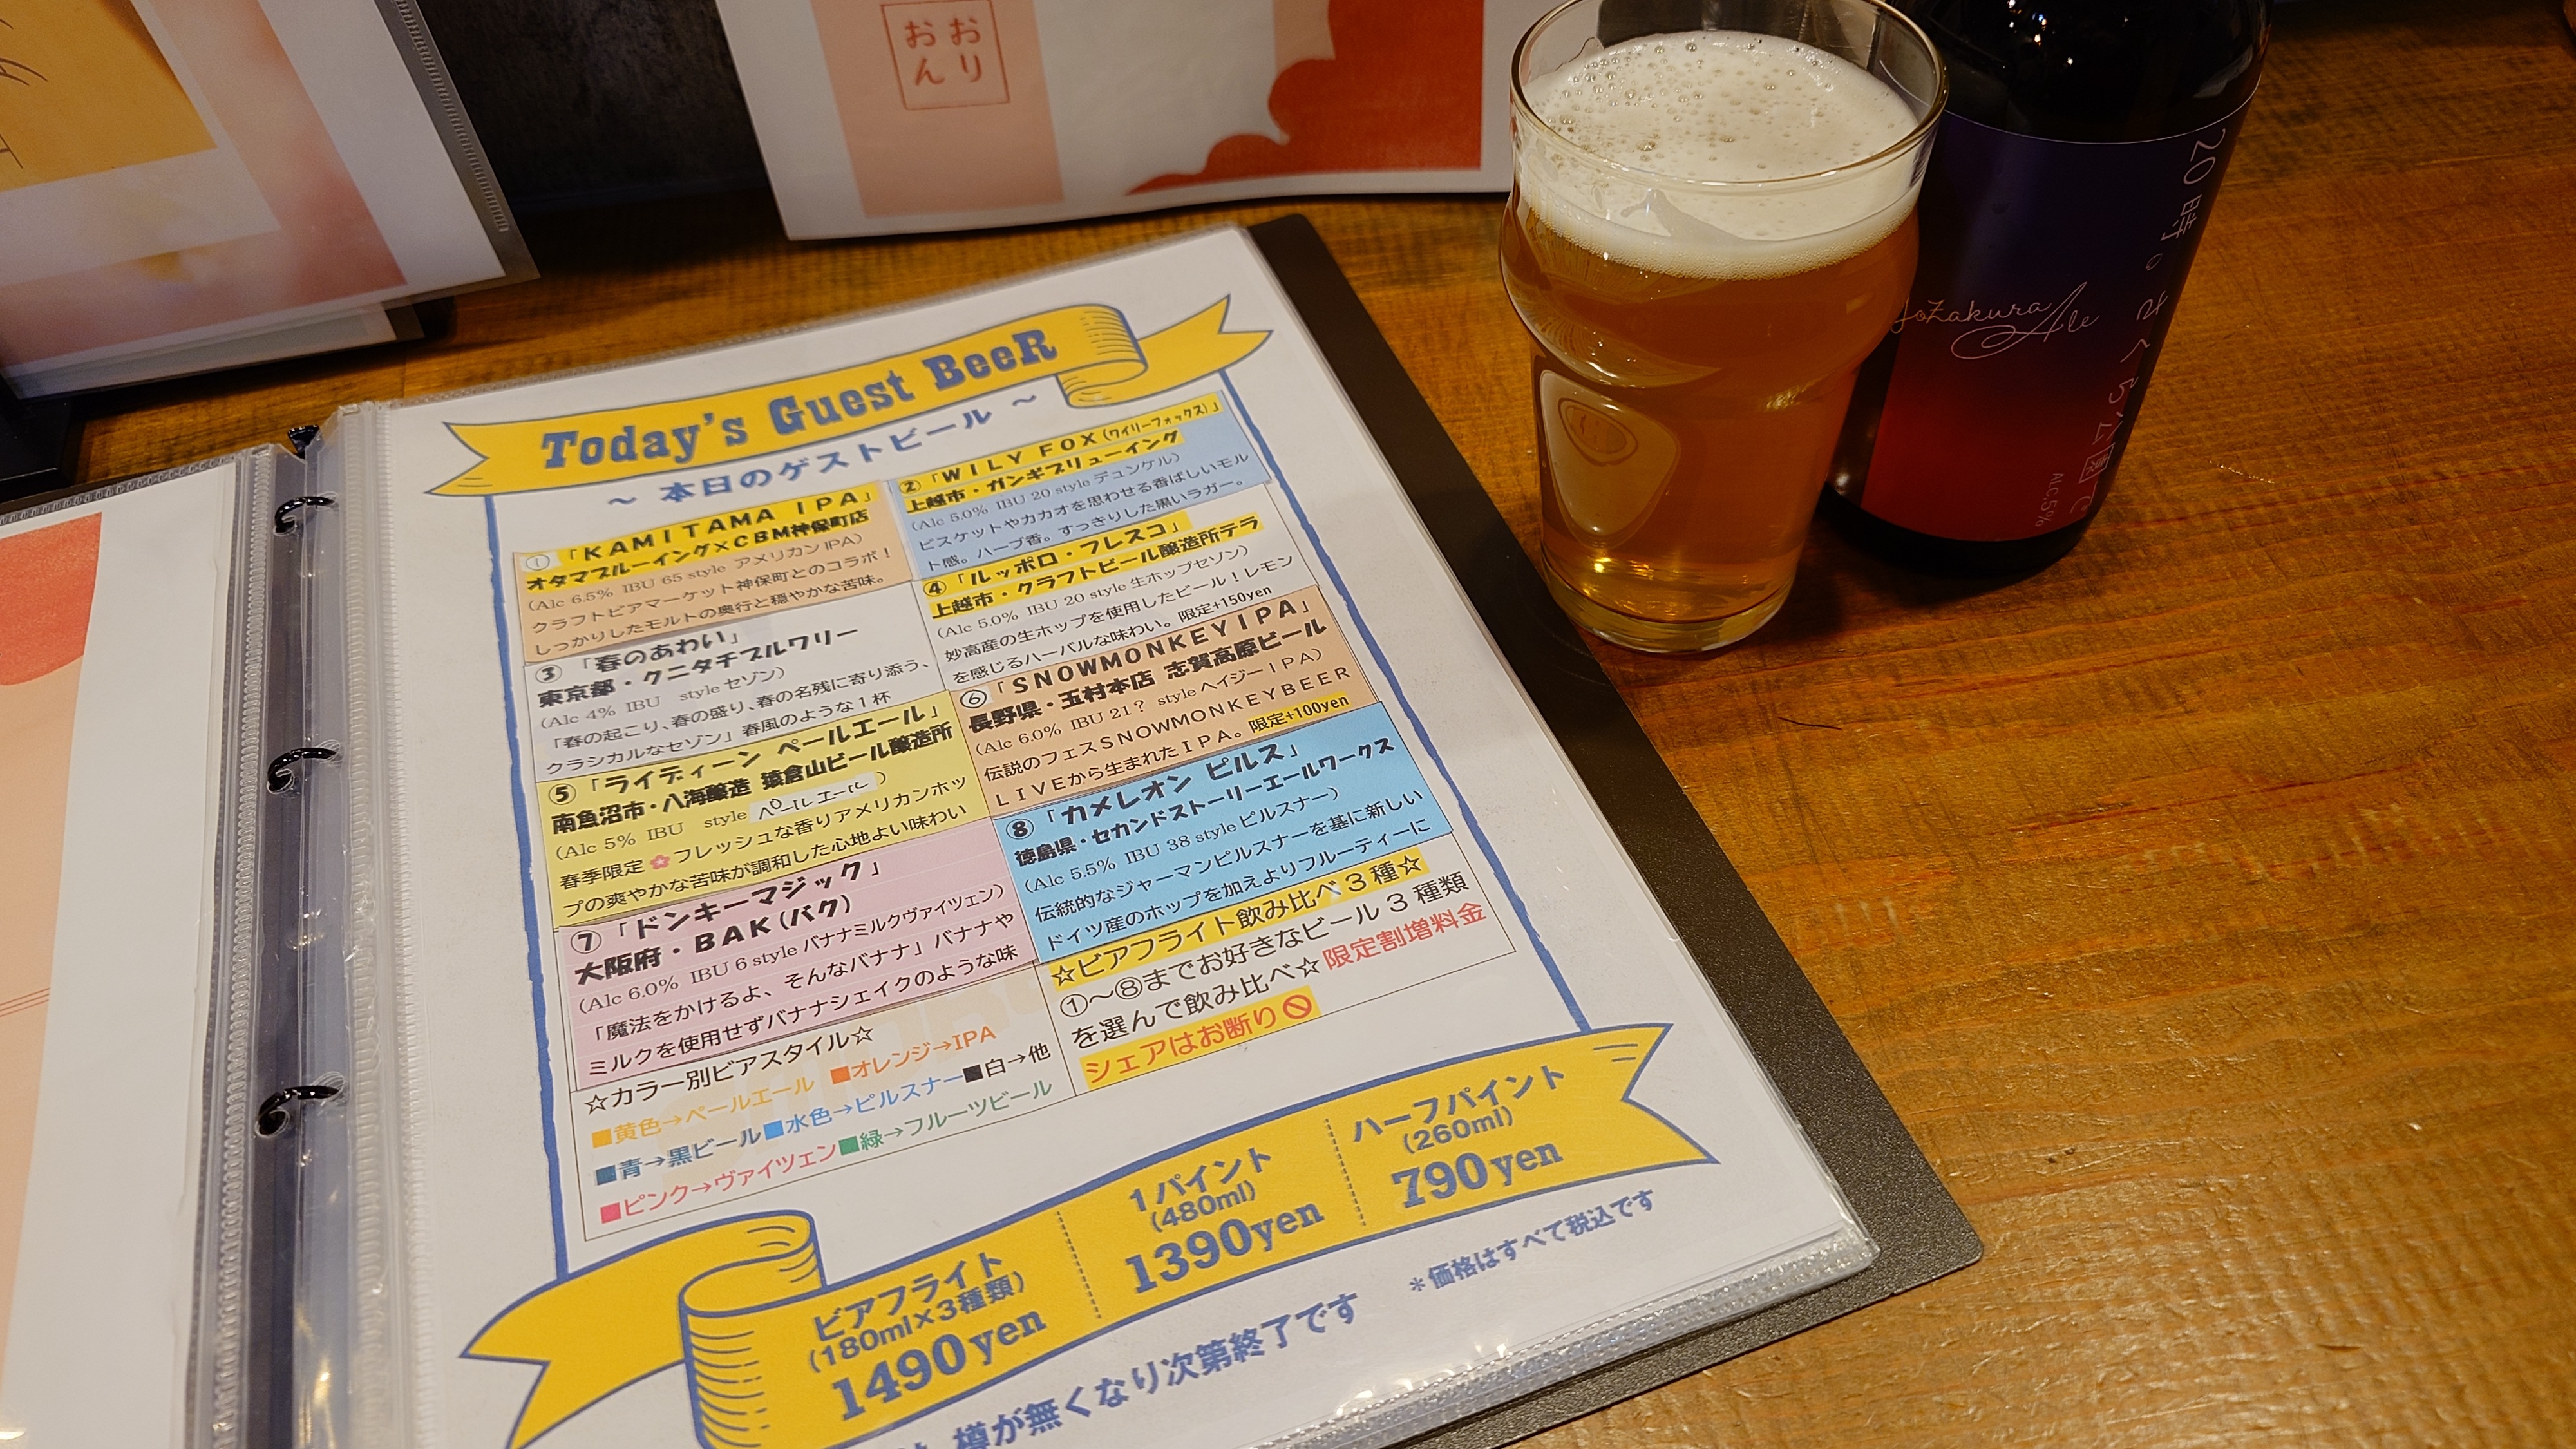 おり
おん
20時。さくら公園で
YozakuraAle
ALC.5%
Today's Guest BeeR
～ 本日のゲストビール ～
①「KAMITAMA IPA」
オタマブルーイング×CBM神保町店
(Alc 6.5% IBU 65 style アメリカンIPA)
クラフトビアマーケット神保町とのコラボ！
しっかりしたモルトの奥行と穏やかな苦味。
②「WILY FOX(ワイリーフォックス)」
上越市・ガンギブリューイング
(Alc 5.0% IBU 20 style デュンケル)
ビスケットやカカオを思わせる香ばしいモル
ト感。ハーブ香。すっきりした黒いラガー。
③「春のあわい」
東京都・クニタチブルワリー
(Alc 4% IBU style セゾン)
「春の起こり、春の盛り、春の名残に寄り添う、
クラシカルなセゾン」春風のような1杯
④「ルッポロ・フレスコ」
上越市・クラフトビール醸造所テラ
(Alc 5.0% IBU 20 style 生ホップセゾン)
妙高産の生ホップを使用したビール！レモン
を感じるハーバルな味わい。限定+150yen
⑤「ライディーン ペールエール」
南魚沼市・八海醸造 猿倉山ビール醸造所
(Alc 5% IBU style ペールエール)
春季限定🌸フレッシュな香りアメリカンホッ
プの爽やかな苦味が調和した心地よい味わい
⑥「SNOWMONKEYIPA」
長野県・玉村本店 志賀高原ビール
(Alc 6.0% IBU 21？ style ヘイジーIPA)
伝説のフェスSNOWMONKEYBEER
LIVEから生まれたIPA。限定+100yen
⑦「ドンキーマジック」
大阪府・BAK(バク)
(Alc 6.0% IBU 6 style バナナミルクヴァイツェン)
「魔法をかけるよ、そんなバナナ」バナナや
ミルクを使用せずバナナシェイクのような味
⑧「カメレオン ピルス」
徳島県・セカンドストーリーエールワークス
(Alc 5.5% IBU 38 style ピルスナー)
伝統的なジャーマンピルスナーを基に新しい
ドイツ産のホップを加えよりフルーティーに
☆カラー別ビアスタイル☆
■黄色→ペールエール ■オレンジ→IPA
■青→黒ビール■水色→ピルスナー■白→他
■ピンク→ヴァイツェン■緑→フルーツビール
☆ビアフライト飲み比べ3種☆
①～⑧までお好きなビール3種類
を選んで飲み比べ☆限定割増料金
シェアはお断り🚫
ビアフライト
(180ml×3種類)
1490yen
1パイント
(480ml)
1390yen
ハーフパイント
(260ml)
790yen
＊価格はすべて税込です
樽が無くなり次第終了です